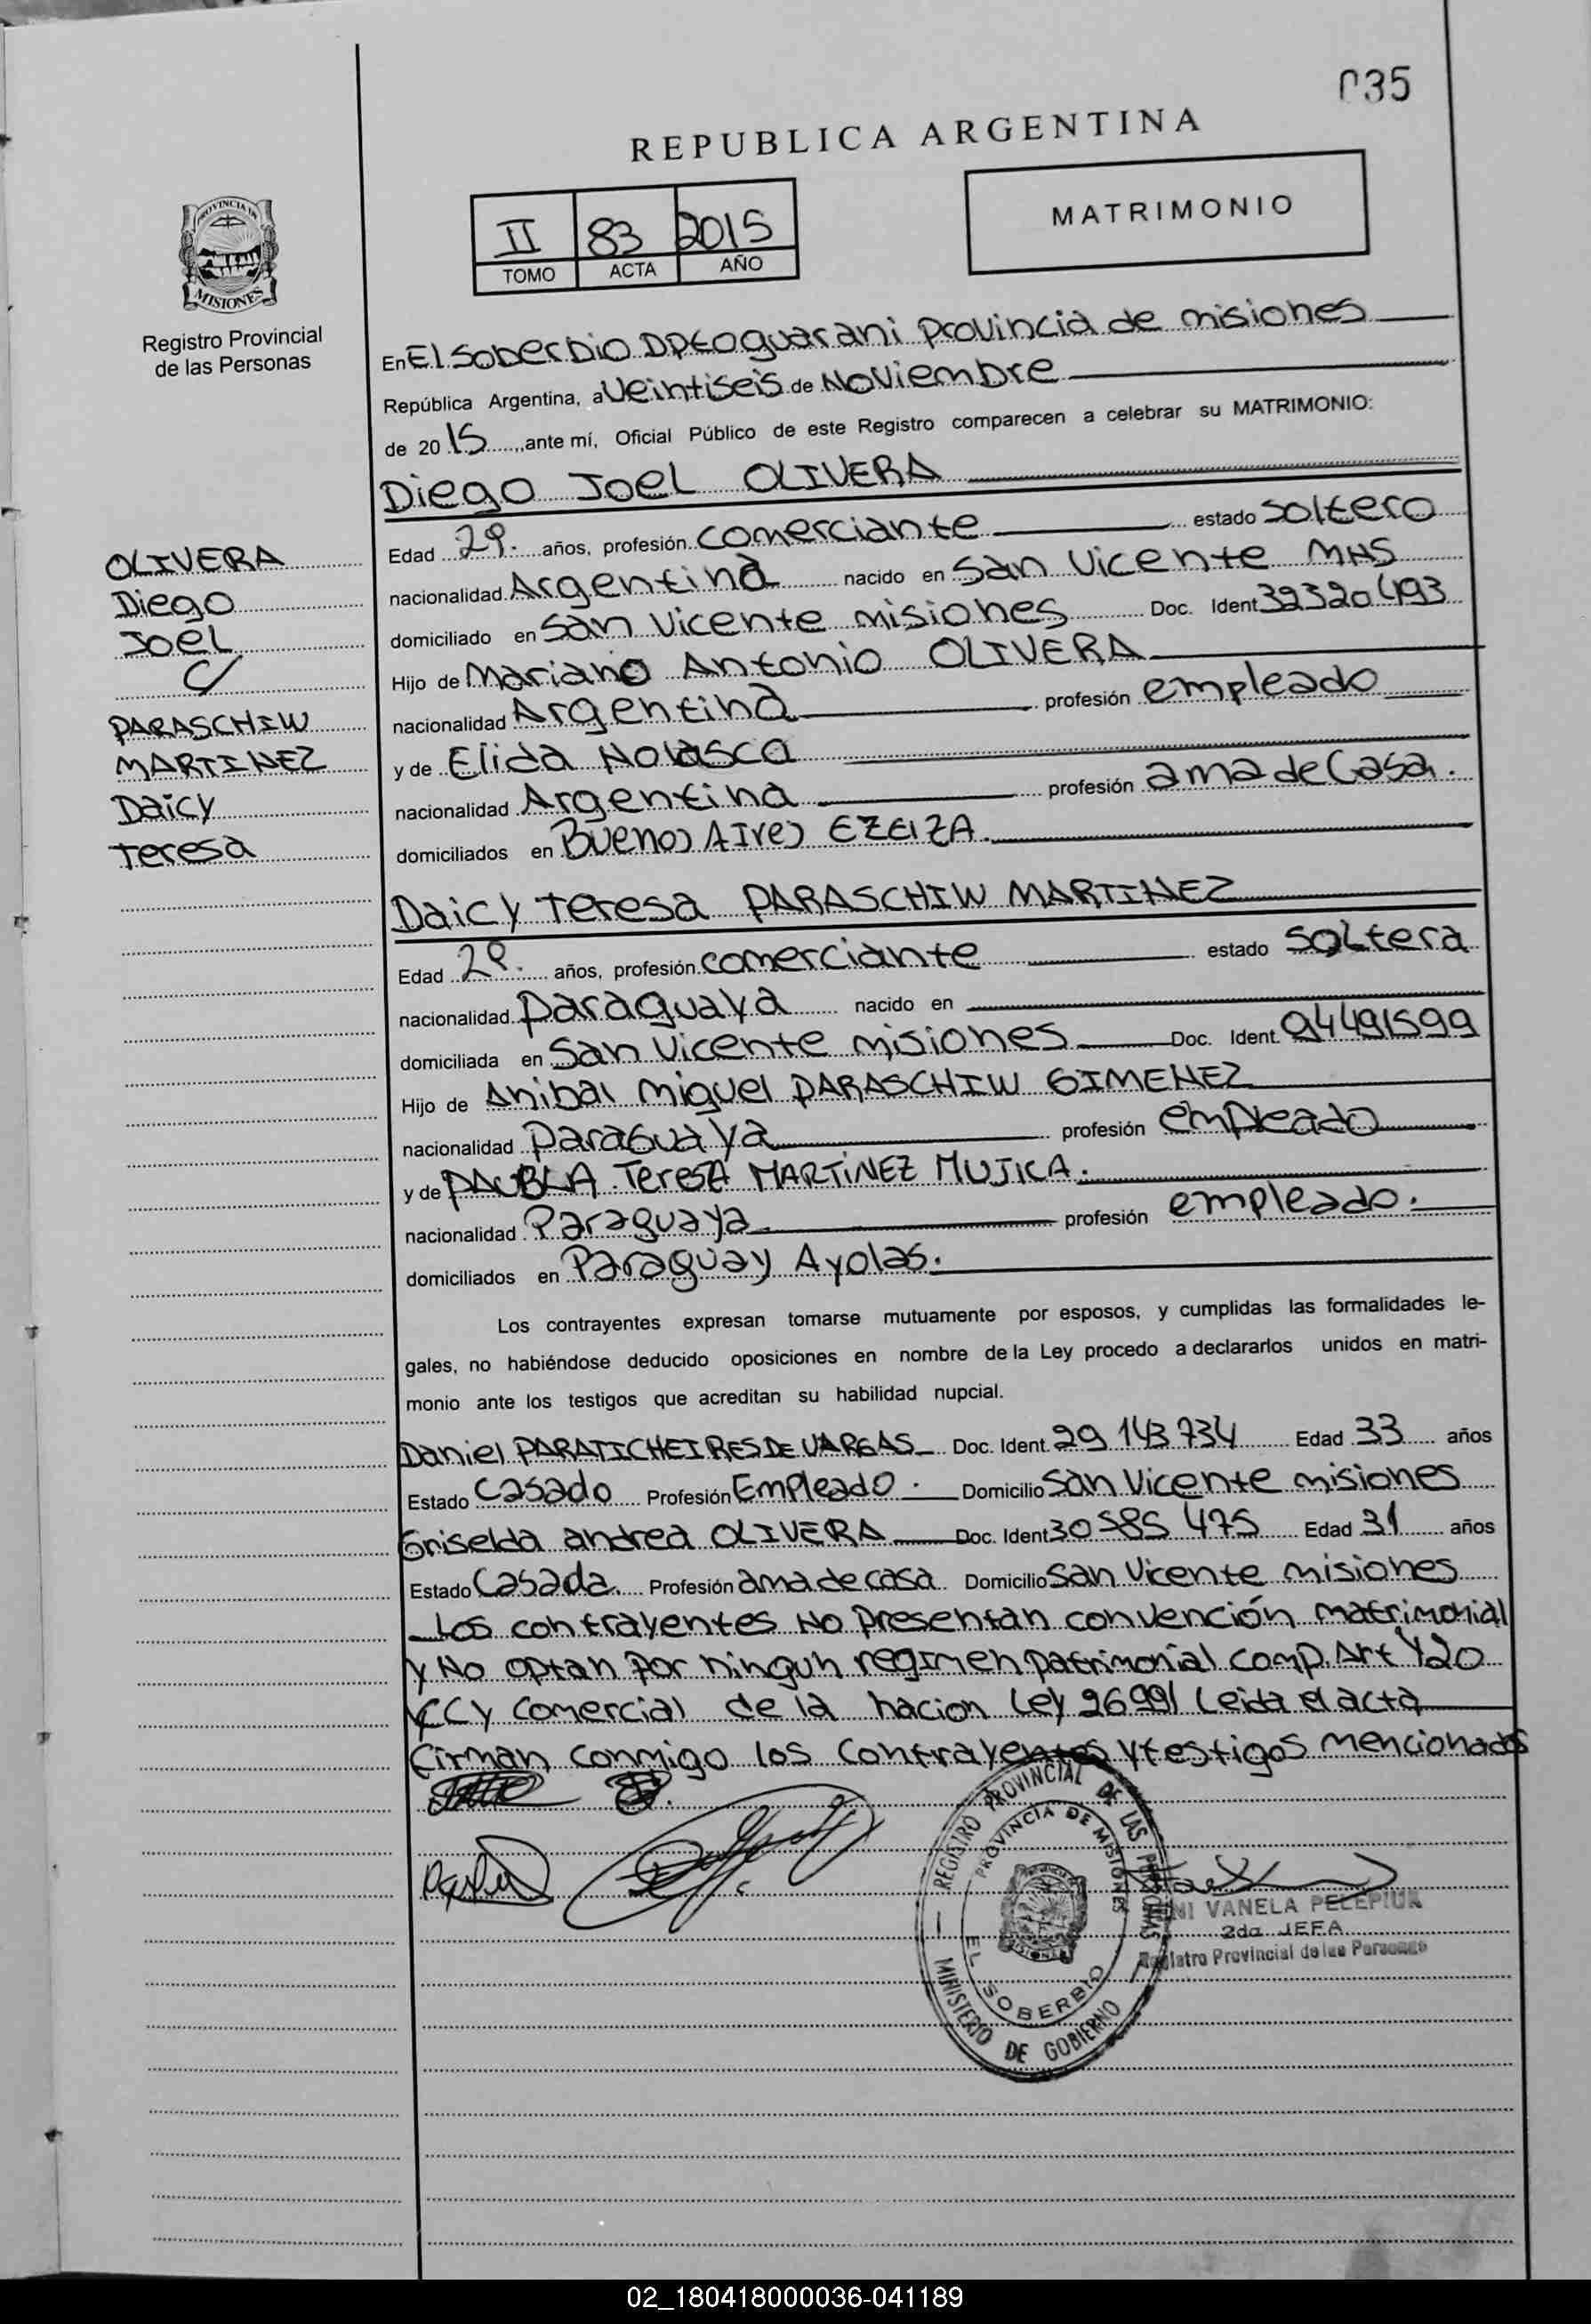 035
REPUBLICA ARGENTINA
II 83 2015
TOMO ACTA AÑO
MATRIMONIO
PROVINCIA DE
MISIONES
Registro Provincial
de las Personas
En El Soberbio Dpto guarani Provincia de misiones
República Argentina, a Veintiseis de Noviembre
de 2015, ante mí, Oficial Público de este Registro comparecen a celebrar su MATRIMONIO:
Diego Joel OLIVERA
Edad 29. años, profesión comerciante estado soltero
nacionalidad Argentina nacido en San Vicente MNS
domiciliado en San Vicente misiones Doc. Ident 32320493
Hijo de Mariano Antonio OLIVERA
nacionalidad Argentina profesión empleado
y de Elida Nolasco
nacionalidad Argentina profesión ama de Casa.
domiciliados en Buenos Aires EZEIZA.
OLIVERA
Diego
Joel
C/
PARASCHIW
MARTINEZ
Daicy
Teresa
Daicy Teresa PARASCHIW MARTINEZ
Edad 29. años, profesión comerciante estado soltera
nacionalidad Paraguaya nacido en
domiciliada en San Vicente misiones Doc. Ident. 94491599
Hijo de Anibal Miguel PARASCHIW GIMENEZ
nacionalidad Paraguaya profesión empleado
y de Teresa MARTINEZ MUJICA.
nacionalidad Paraguaya. profesión empleado.
domiciliados en Paraguay Ayolas.
Los contrayentes expresan tomarse mutuamente por esposos, y cumplidas las formalidades le-
gales, no habiéndose deducido oposiciones en nombre de la Ley procedo a declararlos unidos en matri-
monio ante los testigos que acreditan su habilidad nupcial.
Daniel DE VARGAS Doc. Ident. 29 143 734 Edad 33 años
Estado Casado Profesión Empleado. Domicilio San Vicente misiones
Griselda andrea OLIVERA Doc. Ident 30585 475 Edad 31 años
Estado Casada. Profesión ama de casa Domicilio San Vicente misiones
Los contrayentes No Presentan convención matrimonial
y No optan por ningun regimen patrimonial comp. Art 420
CCy Comercial de la nacion Ley 26991 Leida el acta
firman conmigo los contrayentes y testigos mencionados
REGISTRO PROVINCIAL DE LAS PERSONAS
MINISTERIO DE GOBIERNO
PROVINCIA DE MISIONES
EL SOBERBIO
VANELA PELEPIUK
2da. JEFA
Registro Provincial de las Personas
02_180418000036-041189